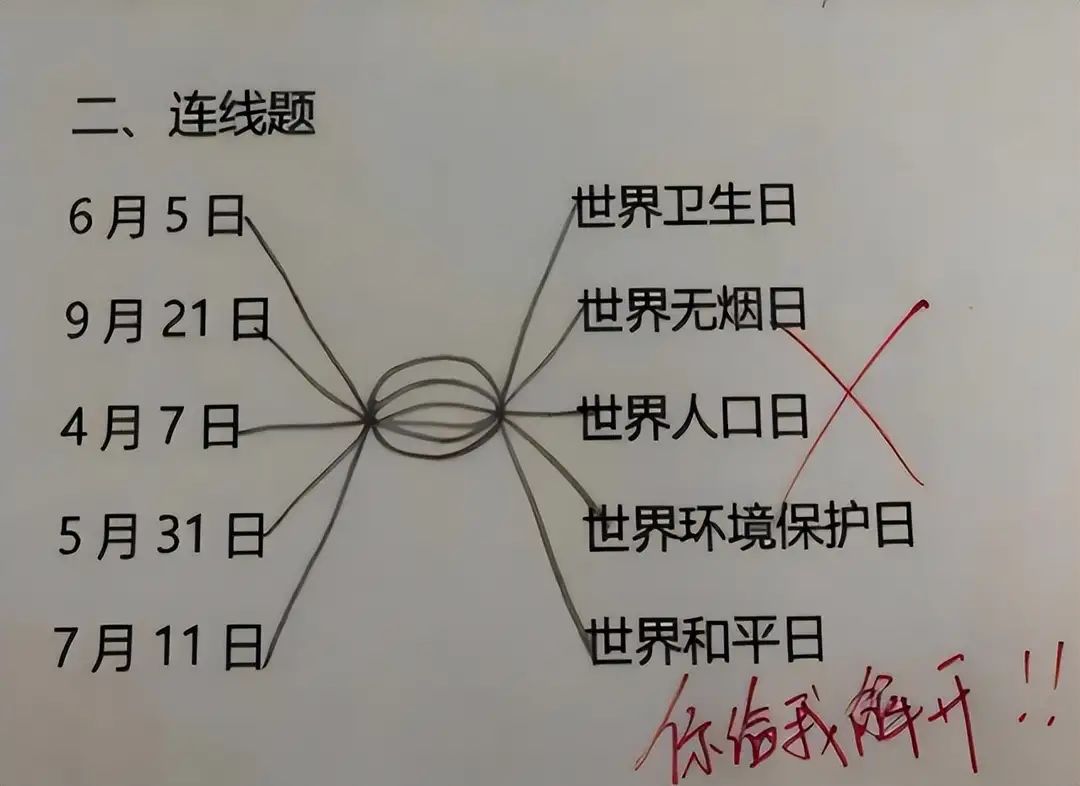 二、连线题
6月5日 世界卫生日
9月21日 世界无烟日
4月7日 世界人口日
5月31日 世界环境保护日
7月11日 世界和平日
你给我解开!!